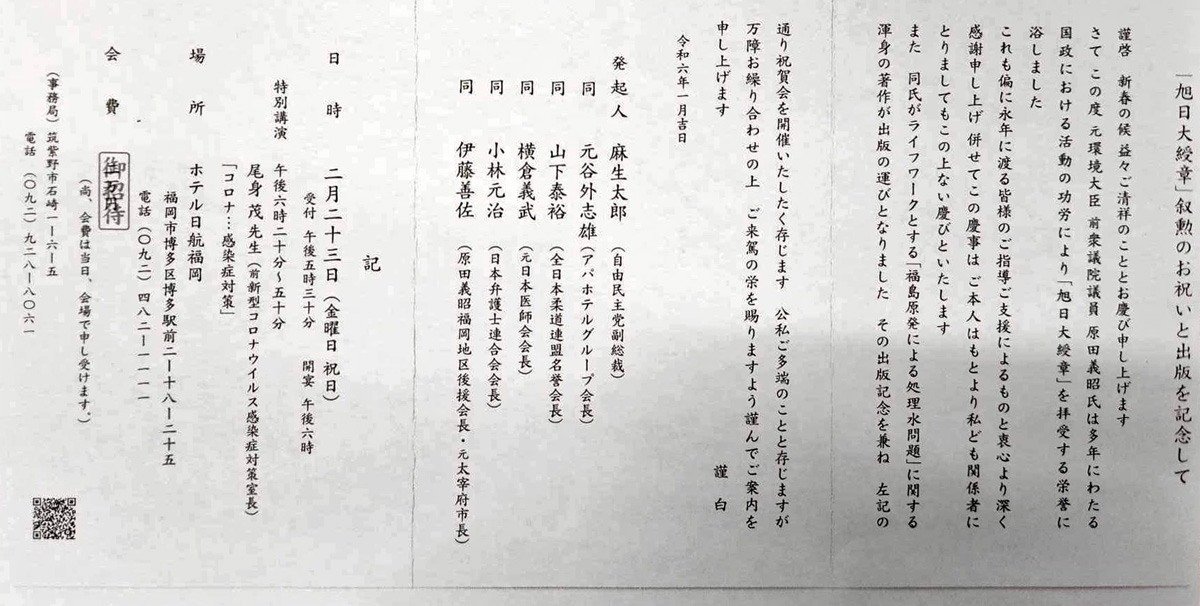 「旭日大綬章」叙勲のお祝いと出版を記念して
謹啓　新春の候　益々ご清祥のこととお慶び申し上げます
さて　この度　元環境大臣　前衆議院議員　原田義昭氏は多年にわたる
国政における活動の功労により「旭日大綬章」を拝受する栄誉に
浴しました
これも偏に永年に渡る皆様のご指導ご支援によるものと衷心より深く
感謝申し上げ　併せてこの慶事は　ご本人はもとより私ども関係者に
とりましてもこの上ない慶びといたします
また　同氏がライフワークとする「福島原発による処理水問題」に関する
渾身の著作が出版の運びとなりました　その出版記念を兼ね　左記の
通り祝賀会を開催いたしたく存じます　公私ご多端のことと存じますが
万障お繰り合わせの上　ご来駕の栄を賜りますよう謹んでご案内を
申し上げます
謹　白
令和六年一月吉日
発起人　麻生太郎（自由民主党副総裁）
同　元谷外志雄（アパホテルグループ会長）
同　山下泰裕（全日本柔道連盟名誉会長）
同　横倉義武（元日本医師会会長）
同　小林元治（日本弁護士連合会会長）
同　伊藤善佐（原田義昭福岡地区後援会長・元太宰府市長）
記
日　時　二月二十三日（金曜日　祝日）
受付　午後五時三十分　開宴　午後六時
特別講演　午後六時二十分〜五十分
尾身　茂　先生（前新型コロナウイルス感染症対策室長）
「コロナ…感染症対策」
場　所　ホテル日航福岡
福岡市博多区博多駅前二ー十八ー二十五
電話（〇九二）四八二ー一一一一
会　費　御招待
（尚、会費は当日、会場で申し受けます。）
（事務局）筑紫野市石崎一ー六ー五
電話（〇九二）九二八ー八〇六一